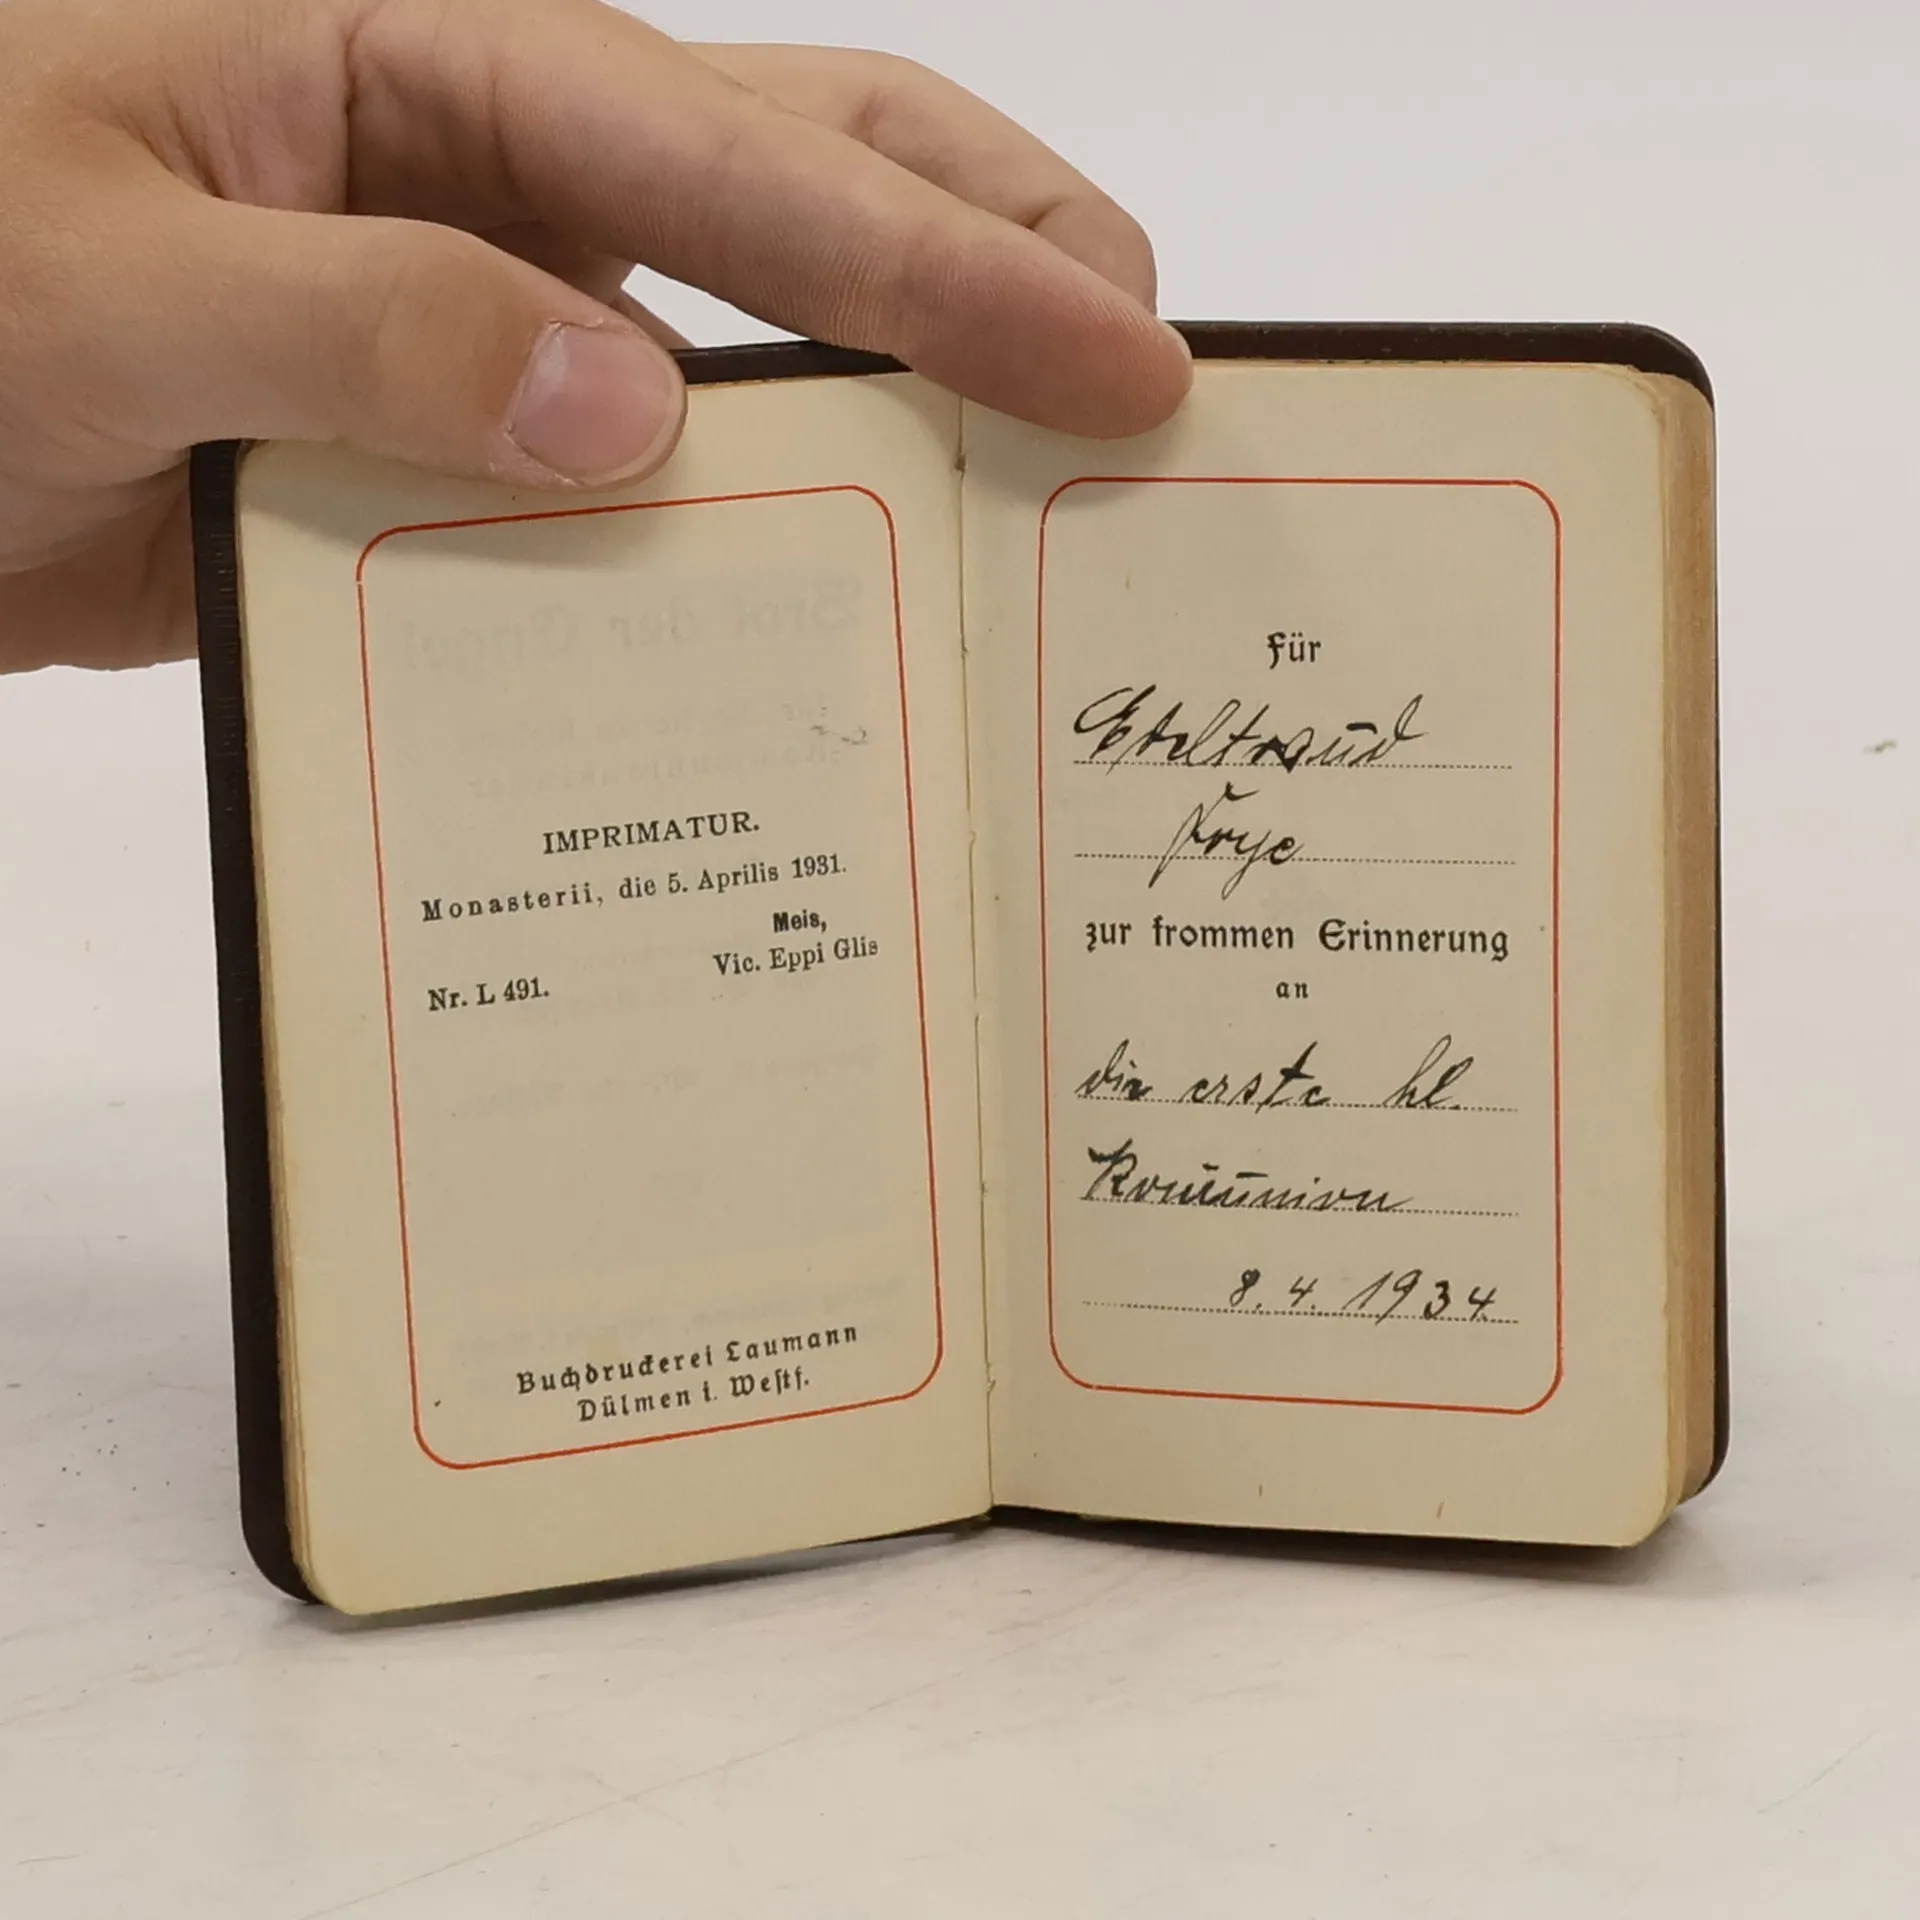 IMPRIMATUR.
Monasterii, die 5. Aprilis 1931.
Meis,
Vic. Eppi Glis
Nr. L 491.
Buchdruckerei Laumann
Dülmen i. Westf.
Für
Edeltraud
zur frommen Erinnerung
an
die erste hl.
Kom̅union
8. 4. 1934.